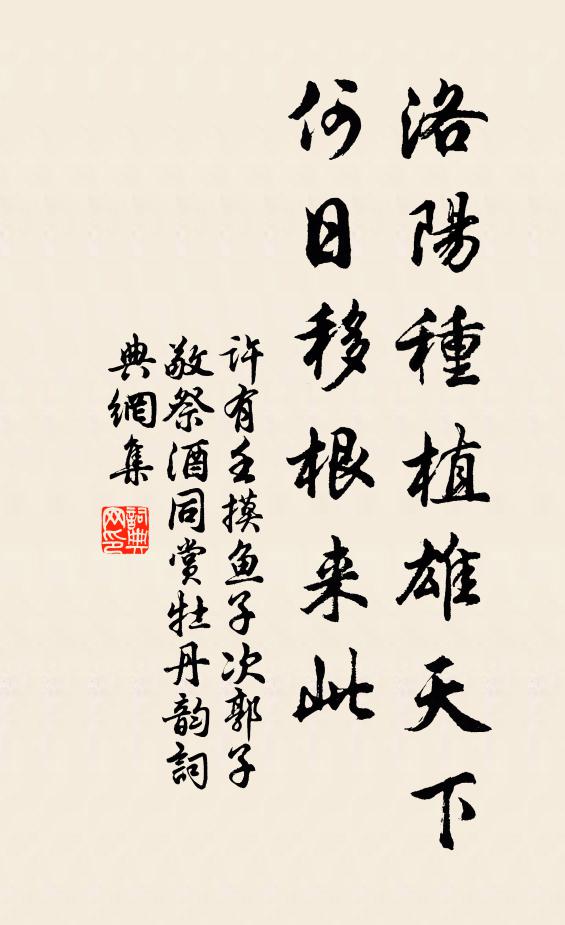 洛陽種植雄天下
何日移根来此
许有壬摸鱼子次郭子
敬祭酒同赏牡丹韵詞
典網集
詞典
网印